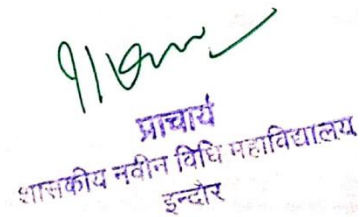 प्राचार्य
शासकीय नवीन विधि महाविद्यालय
इन्दौर